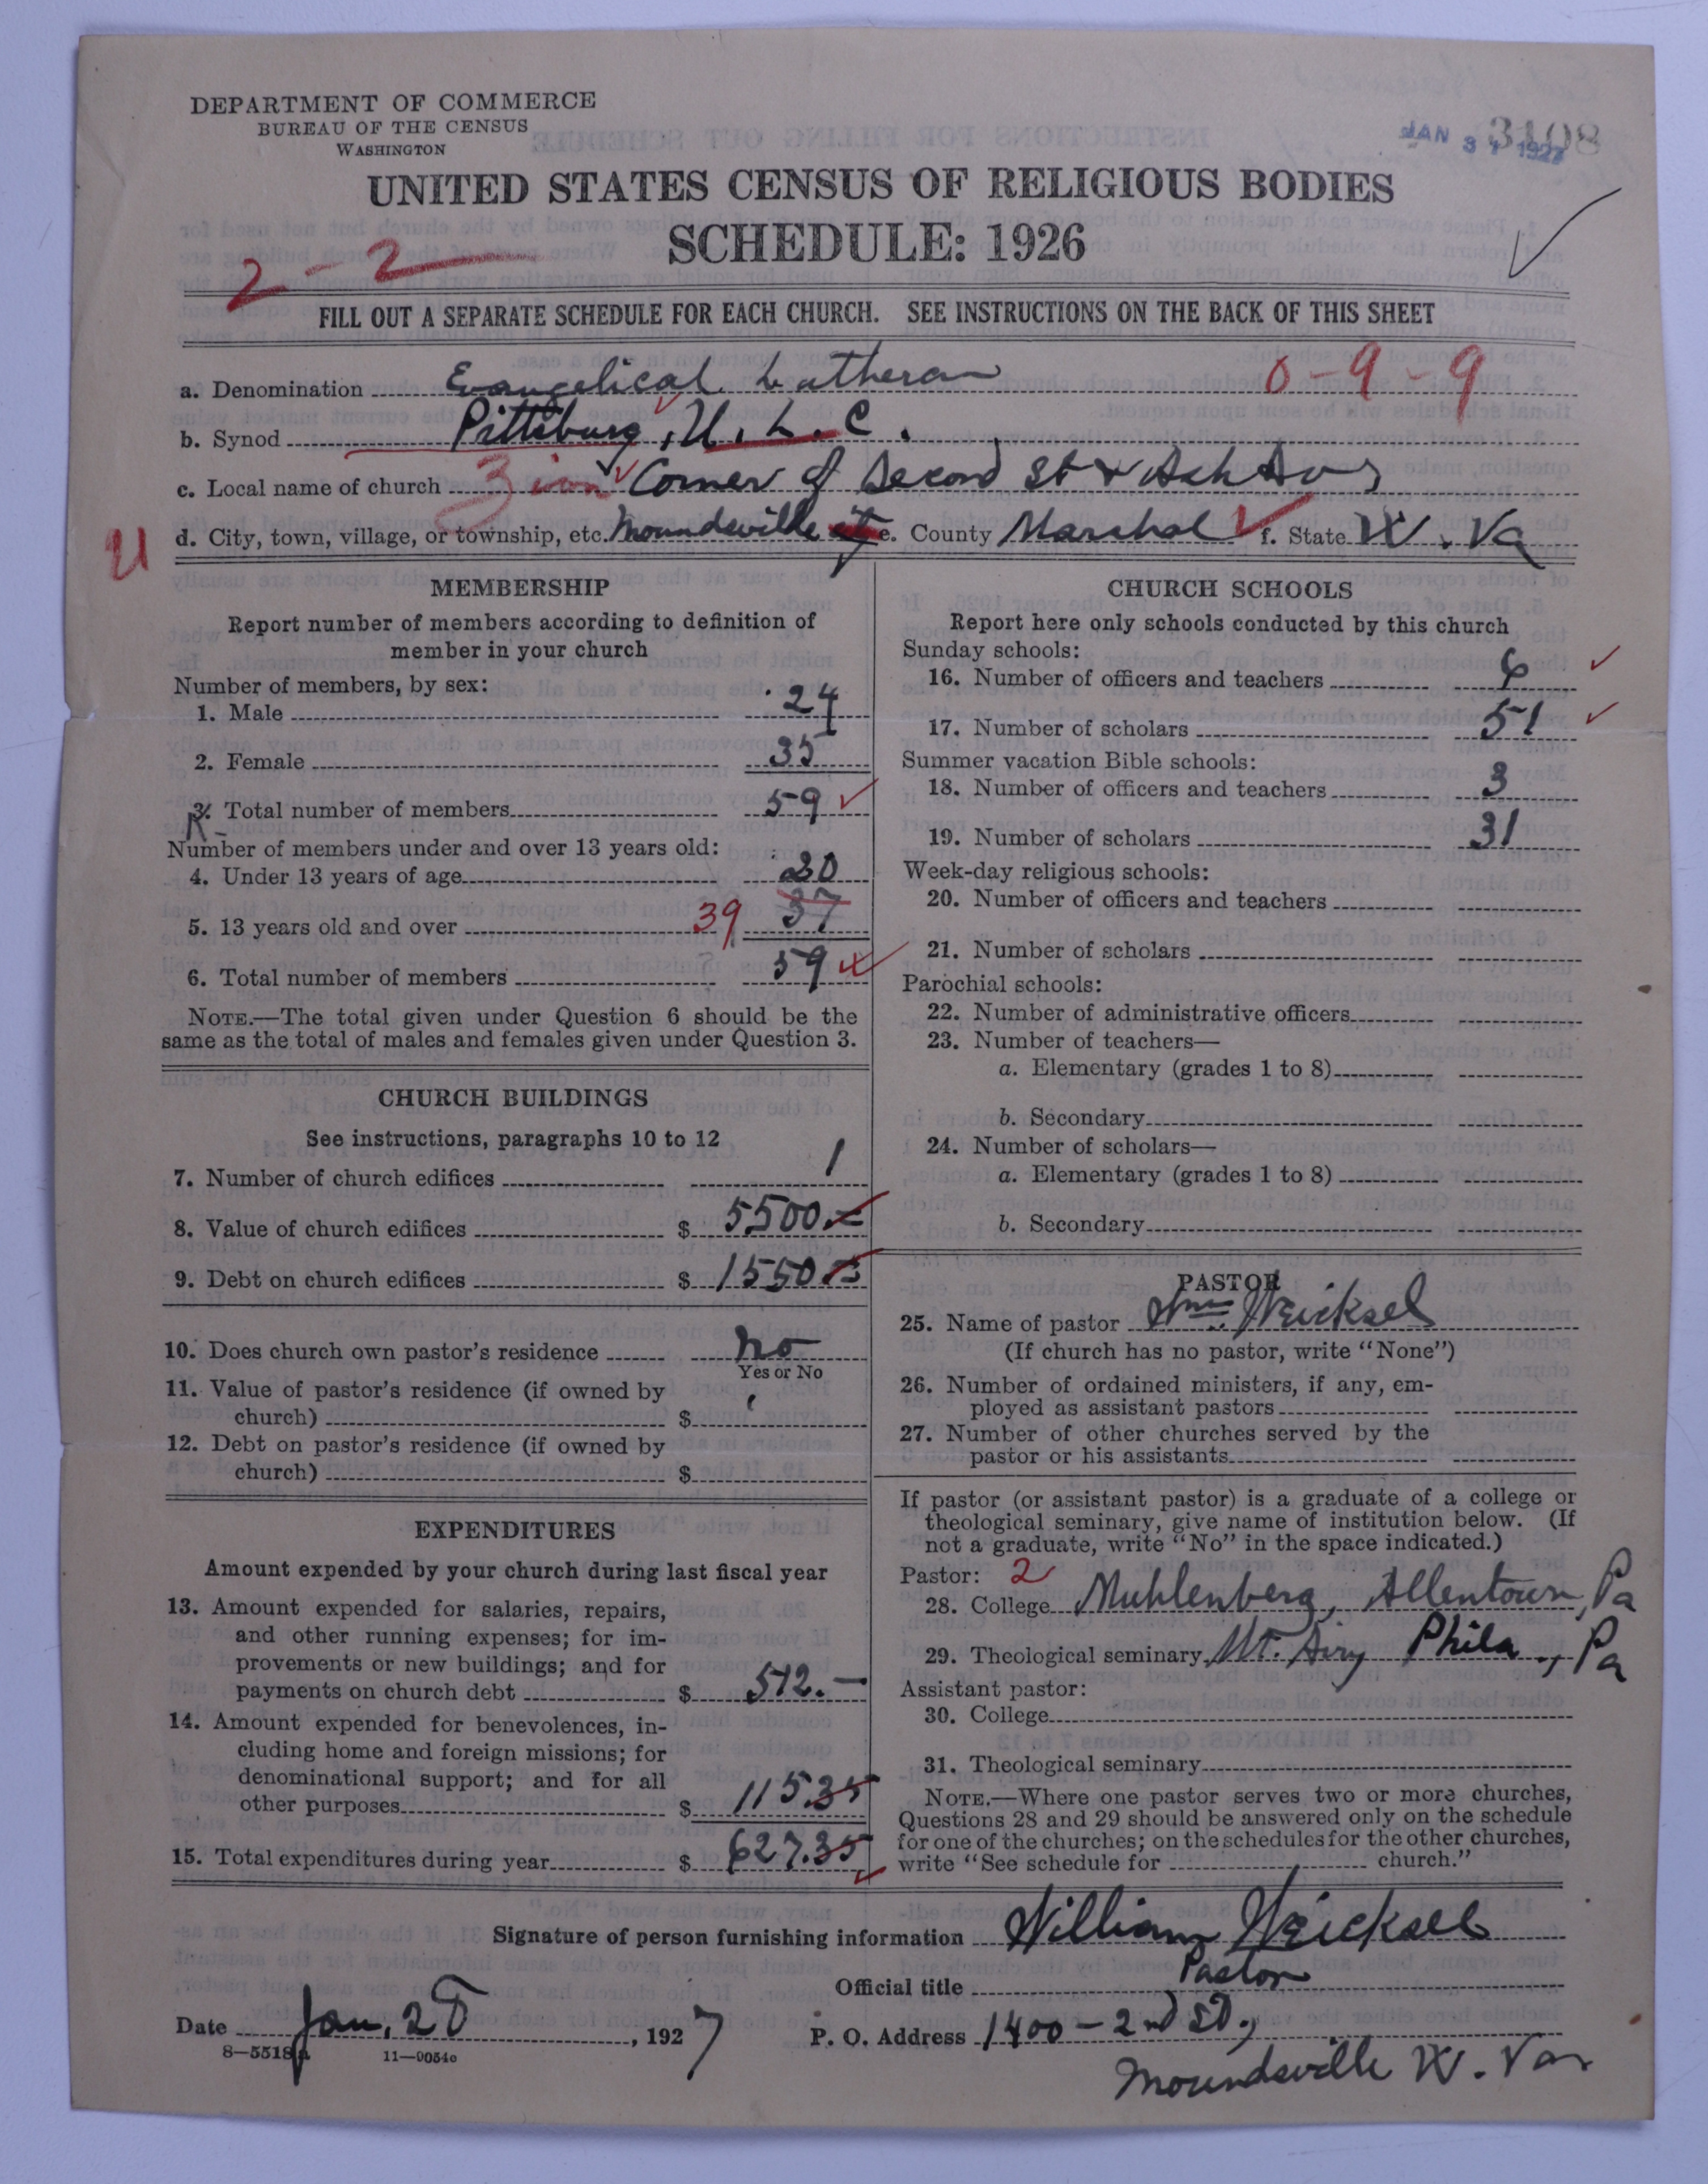 DEPARTMENT OF COMMERCE
BUREAU OF THE CENSUS
WASHINGTON
3108
JAN 31 1927
UNITED STATES CENSUS OF RELIGIOUS BODIES
SCHEDULE: 1926
2-2
FILL OUT A SEPARATE SCHEDULE FOR EACH CHURCH. SEE INSTRUCTIONS ON THE BACK OF THIS SHEET
a. Denomination Evangelical Lutheran 0-9-9
b. Synod Pittsburg, U. L. C.
c. Local name of church Zion Corner of Second St & Ash Ave
U d. City, town, village, or township, etc. Moundsville e. County Marshal f. State W. Va
MEMBERSHIP
Report number of members according to definition of
member in your church
Number of members, by sex:
1. Male 24
2. Female 35
3. Total number of members 59
Number of members under and over 13 years old:
4. Under 13 years of age 20
5. 13 years old and over 39 37
6. Total number of members 59
NOTE.—The total given under Question 6 should be the
same as the total of males and females given under Question 3.
CHURCH BUILDINGS
See instructions, paragraphs 10 to 12
7. Number of church edifices 1
8. Value of church edifices $ 5500.
9. Debt on church edifices $ 1550.
10. Does church own pastor's residence no
Yes or No
11. Value of pastor's residence (if owned by
church) $
12. Debt on pastor's residence (if owned by
church) $
EXPENDITURES
Amount expended by your church during last fiscal year
13. Amount expended for salaries, repairs,
and other running expenses; for im-
provements or new buildings; and for
payments on church debt $ 512.—
14. Amount expended for benevolences, in-
cluding home and foreign missions; for
denominational support; and for all
other purposes $ 115.35
15. Total expenditures during year $ 627.35
CHURCH SCHOOLS
Report here only schools conducted by this church
Sunday schools:
16. Number of officers and teachers 6
17. Number of scholars 51
Summer vacation Bible schools:
18. Number of officers and teachers 3
19. Number of scholars 31
Week-day religious schools:
20. Number of officers and teachers
21. Number of scholars
Parochial schools:
22. Number of administrative officers
23. Number of teachers—
a. Elementary (grades 1 to 8)
b. Secondary
24. Number of scholars—
a. Elementary (grades 1 to 8)
b. Secondary
PASTOR
25. Name of pastor Wm. Weicksel
(If church has no pastor, write "None")
26. Number of ordained ministers, if any, em-
ployed as assistant pastors
27. Number of other churches served by the
pastor or his assistants
If pastor (or assistant pastor) is a graduate of a college or
theological seminary, give name of institution below. (If
not a graduate, write "No" in the space indicated.)
Pastor: 2
28. College Muhlenberg, Allentown, Pa
29. Theological seminary Mt. Airy Phila., Pa
Assistant pastor:
30. College
31. Theological seminary
NOTE.—Where one pastor serves two or more churches,
Questions 28 and 29 should be answered only on the schedule
for one of the churches; on the schedules for the other churches,
write "See schedule for church."
Signature of person furnishing information William Weicksel
Official title Pastor
Date Jan. 28, 1927 P. O. Address 1400-2nd St.,
8—5518a 11—9054c
Moundsville W. Va